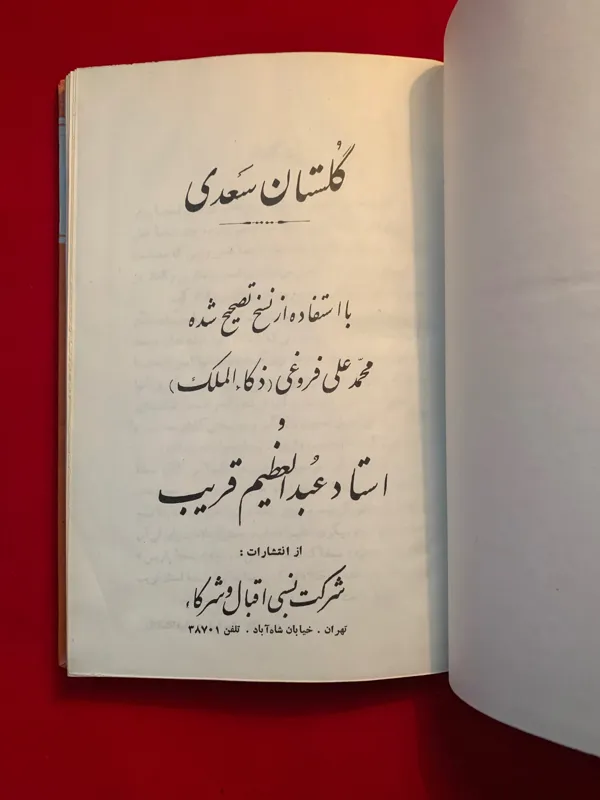 گُلستان سَعدی
با استفاده از نسخ تصحیح شده
محمّد علی فروغی (ذکاء الملک)
و
استاد عبُدالعظیم قریب
از انتشارات :
شرکت نسبی اقبال و شرکاء
تهران . خیابان شاه‌آباد . تلفن ۳۸۷۰۱